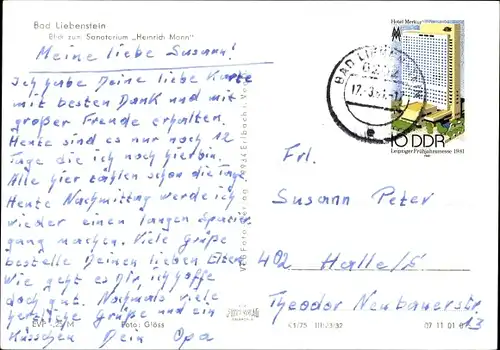 Bad Liebenstein
Blick zum Sanatorium „Heinrich Mann"
Meine liebe Susann!
Ich habe Deine liebe Karte
mit besten Dank und mit
großer Freude erhalten.
Heute sind es nur noch 12
Tage die ich noch hier bin.
Alle hier zählen schon die Tage
Heute Nachmittag werde ich
wieder einen langen Spazier
gang machen. Viele Grüße
bestelle Deinen lieben Eltern
Wie geht es Dir, ich hoffe
doch gut. Nochmals viele
herzliche Grüße und ein
Küsschen Dein Opa
Hotel Merkur
10 DDR
Leipziger Frühjahrsmesse 1981
BAD
Frl.
Susann Peter
402 Halle/S
Theodor Neubauerstr
13
Foto: Gläss
07 11 01